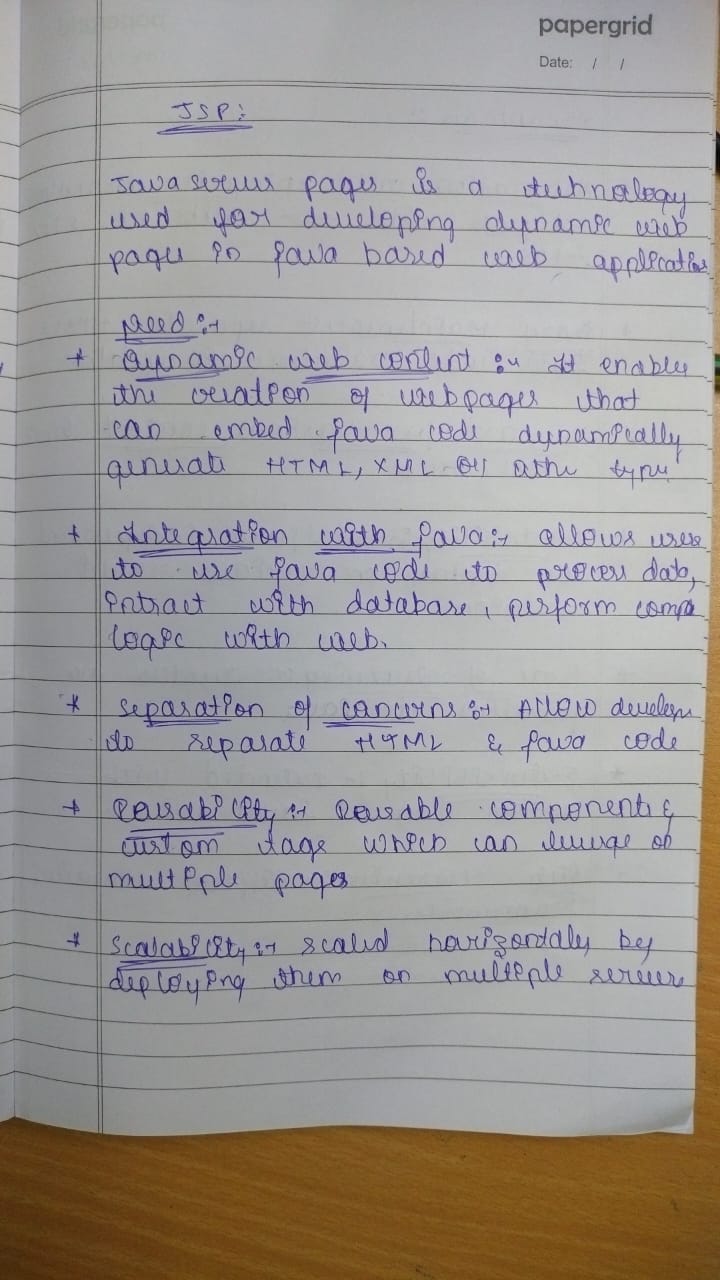 papergrid
Date: / /
JSP:
Java server pages is a technology
used for developing dynamic web
pages in java based web application
Need :-
* Dynamic web content :- It enables
the creation of webpages that
can embed java code dynamically
generate HTML, XML or other type.
* Integration with java :- allows users
to use java code to process data,
intract with database, perform comple
logic with web.
* Separation of concerns :- Allow develope
to separate HTML & java code
* Reusability :- Reusable component &
custom tags which can on
multiple pages
* Scalability :- scaled horizontaly by
deploying them on multiple servers